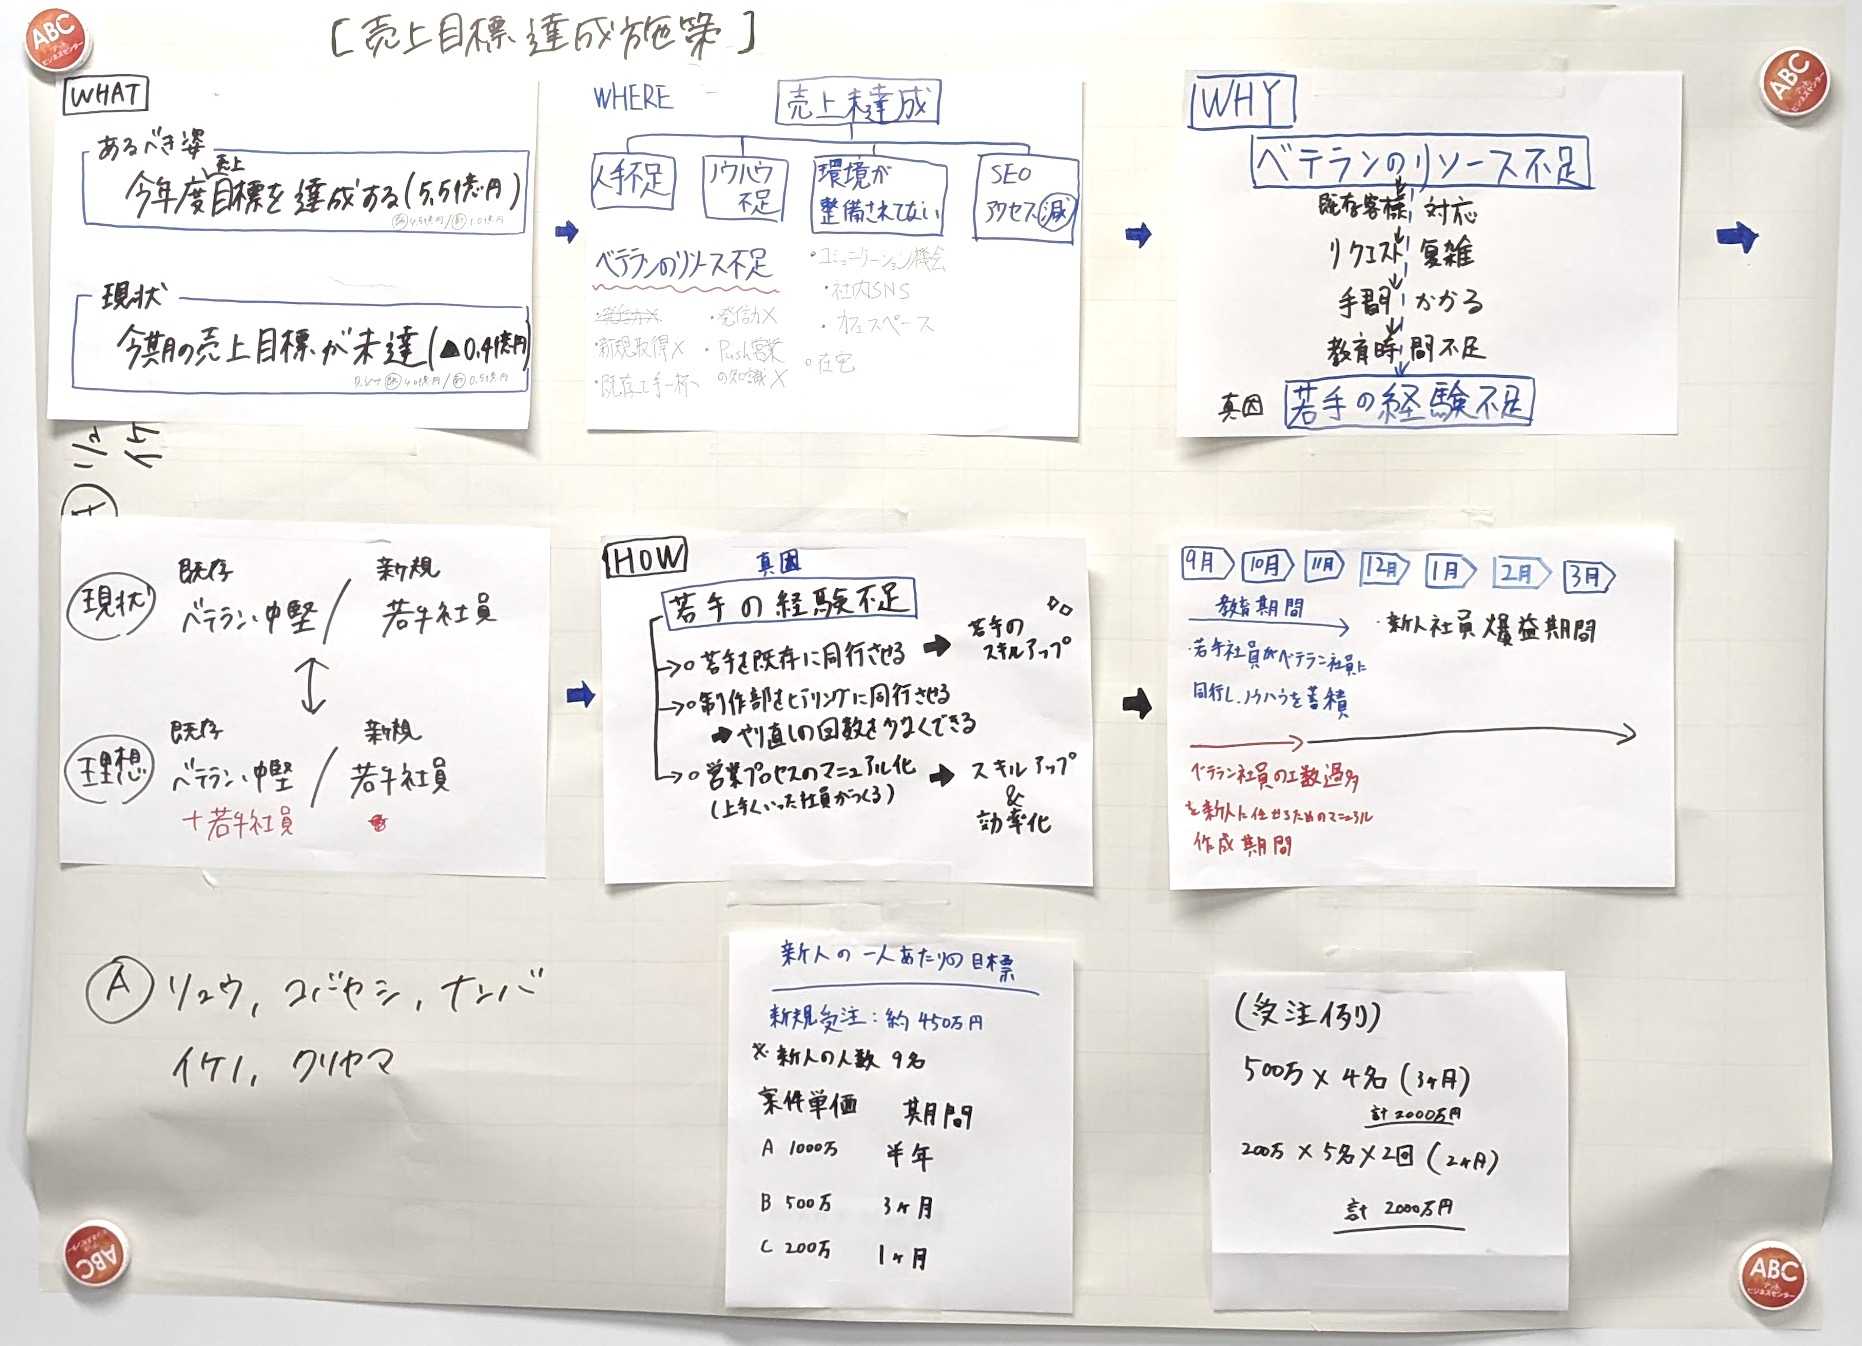 [売上目標達成施策]
WHAT
あるべき姿
売上
今年度目標を達成する(5.5億円)
現状
今期の売上目標が未達(▲0.4億円)
WHERE
売上未達成
人手不足
ノウハウ不足
環境が
整備されてない
SEO
アクセス減
ベテランのリソース不足
・新規取得×
・既存で手一杯
・発信力×
・Push営業
の知識×
・コミュニケーション機会
・社内SNS
・カフェスペース
○在宅
WHY
ベテランのリソース不足
既存客様対応
リクエスト複雑
手間かかる
教育時間不足
真因 若手の経験不足
現状
既存
ベテラン、中堅
/
新規
若手社員
理想
既存
ベテラン、中堅
+若手社員
/
新規
若手社員
HOW
真因
若手の経験不足
○若手を既存に同行させる
若手の
スキルアップ
○制作部をヒアリングに同行させる
やり直しの回数を少なくできる
○営業プロセスのマニュアル化
(上手くいった社員がつくる)
スキルアップ
&
効率化
9月 10月 11月 12月 1月 2月 3月
教育期間
・新人社員爆益期間
・若手社員がベテラン社員に
同行し、ノウハウを蓄積
ベテラン社員の工数過多
を新人に任せるためのマニュアル
作成期間
Ⓐ リュウ, コバヤシ, ナンバ
イケノ, クリヤマ
新人の一人あたりの目標
新規受注:約450万円
※新人の人数 9名
案件単価 期間
A 1000万 半年
B 500万 3ヶ月
C 200万 1ヶ月
(受注例)
500万×4名(3ヶ月)
計2000万円
200万×5名×2回(2ヶ月)
計 2000万円
ABC
ABC
ABC
ABC
ビジネスセンター